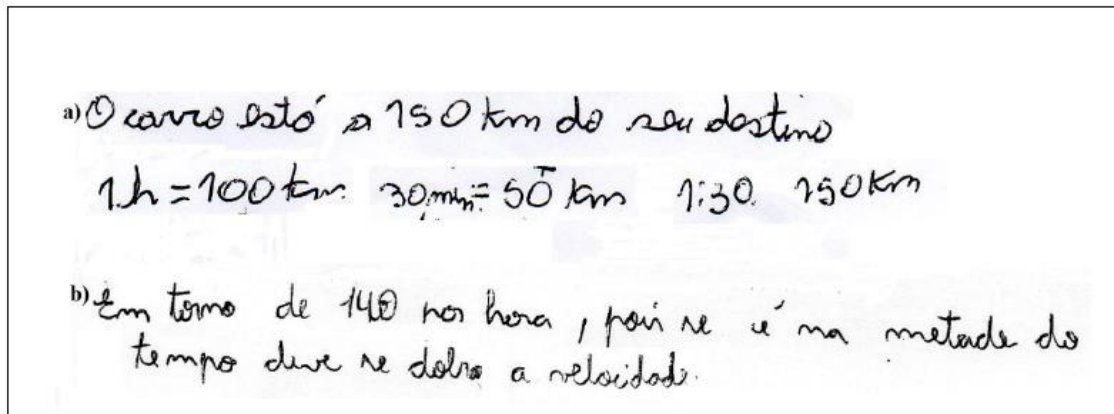 a) O carro está a 150 km do seu destino
1.h = 100 km. 30,min = 50 km 1:30. 150 Km
b) Em torno de 140 por hora, pois se é na metade do
tempo deve se dobra a velocidade.